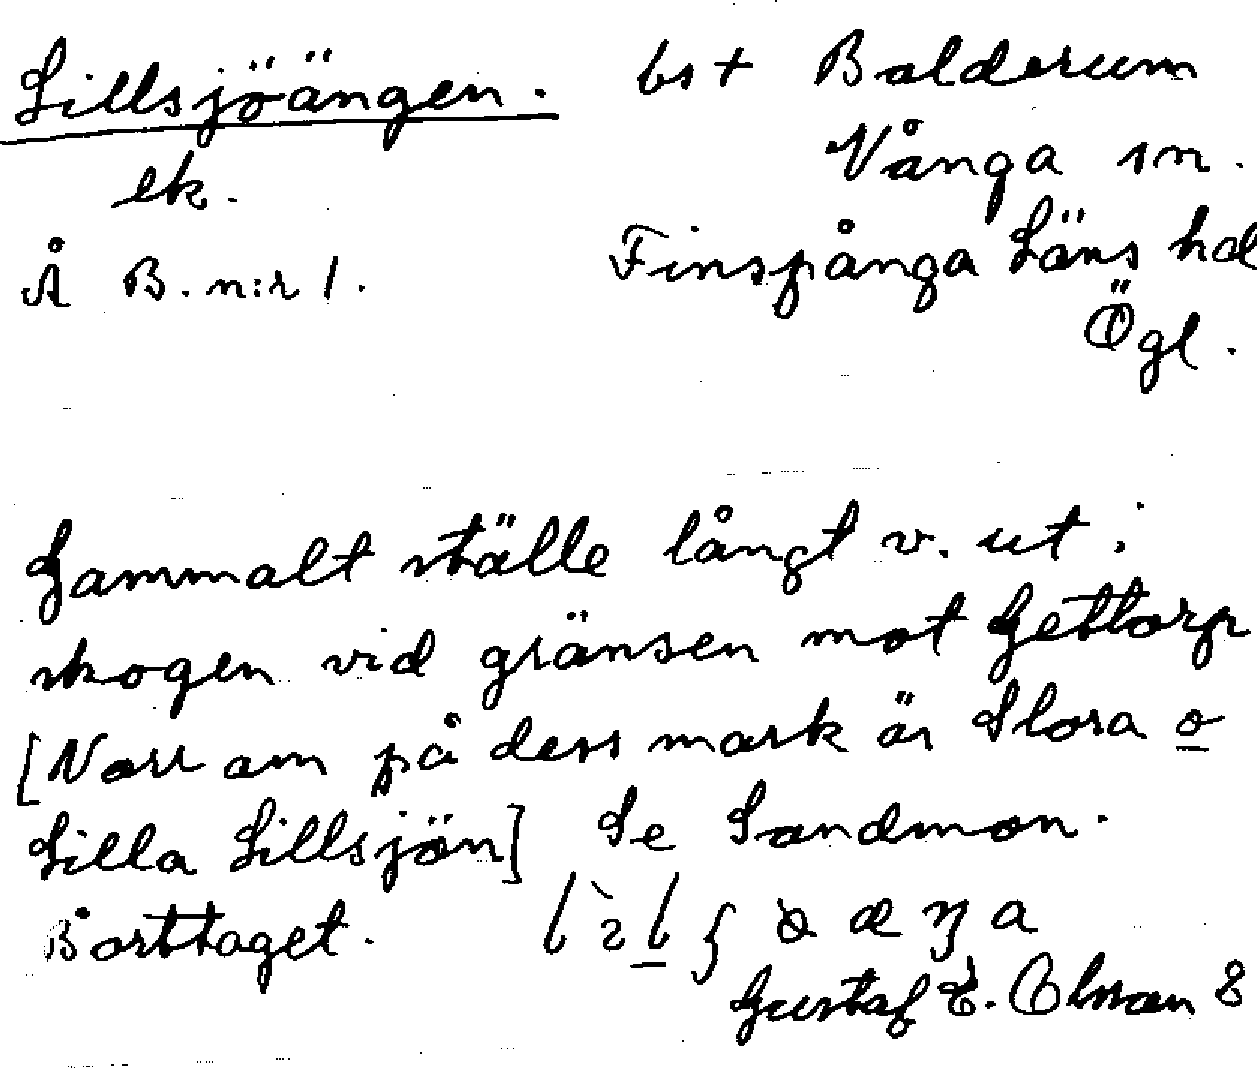 Lillsjöängen. bst Balderum
ek. Vånga sn.
Å B. n:r 1. Finspånga Läns hd
Ögl.
Gammalt ställe långt v. ut i
skogen vid gränsen mot Gettorp
[Norr om på dess mark är Stora o
Lilla Lillsjön] Se Sandmon.
Borttaget.
Gustaf E. Olsson 8